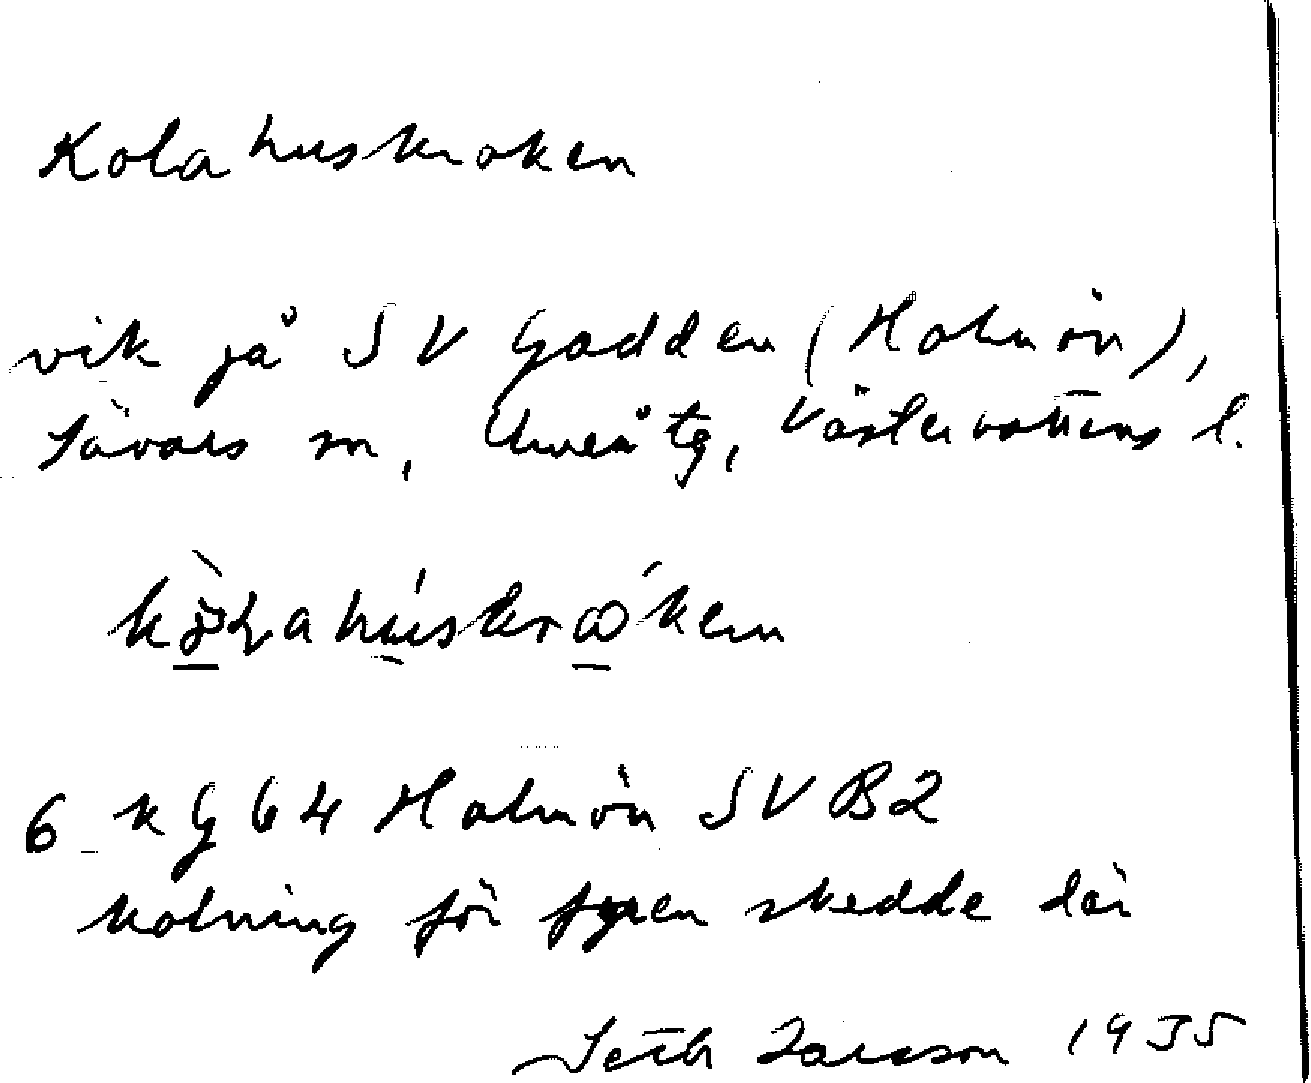 Kolahuskroken
vik på SV Gadden (Holmön),
Sävars sn, Umeå tg, Västerbottens l.
6 kG 64 Holmön SV B2
kolning för fyren skedde där
Seth Larsson 1935